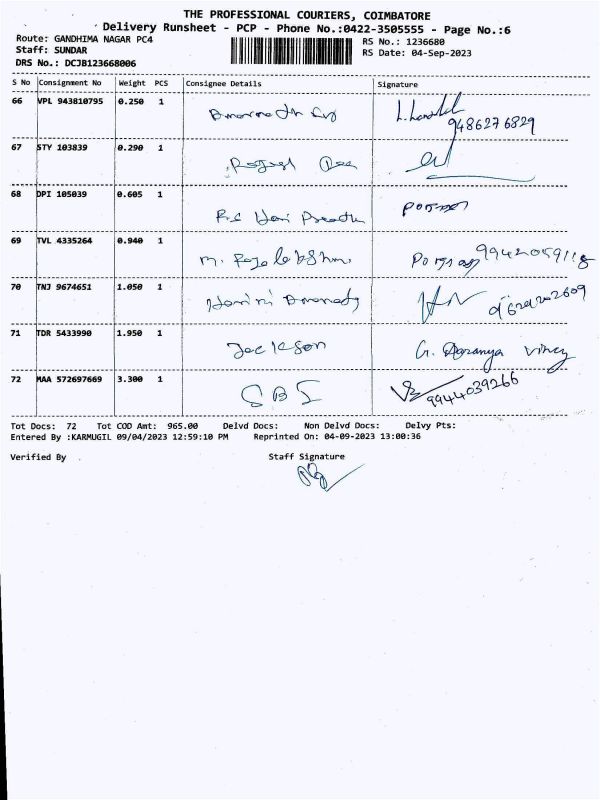 THE PROFESSIONAL COURIERS, COIMBATORE
Delivery Runsheet - PCP - Phone No.:0422-3505555 - Page No.:6
Route: GANDHIMA NAGAR PC4 RS No.: 1236680
Staff: SUNDAR RS Date: 04-Sep-2023
DRS No.: DCJB123668006
S No Consignment No Weight PCS Consignee Details Signature
66 VPL 943810795 0.250 1
9486276829
67 STY 103839 0.290 1
68 DPI 105039 0.605 1
R.S Hari
69 TVL 4335264 0.940 1
M. 9942059118
70 TNJ 9674651 1.050 1
71 TDR 5433990 1.950 1
Jackson G. Saranya
72 MAA 572697669 3.300 1
SBI 9944039266
Tot Docs: 72 Tot COD Amt: 965.00 Delvd Docs: Non Delvd Docs: Delvy Pts:
Entered By :KARMUGIL 09/04/2023 12:59:10 PM Reprinted On: 04-09-2023 13:00:36
Verified By Staff Signature